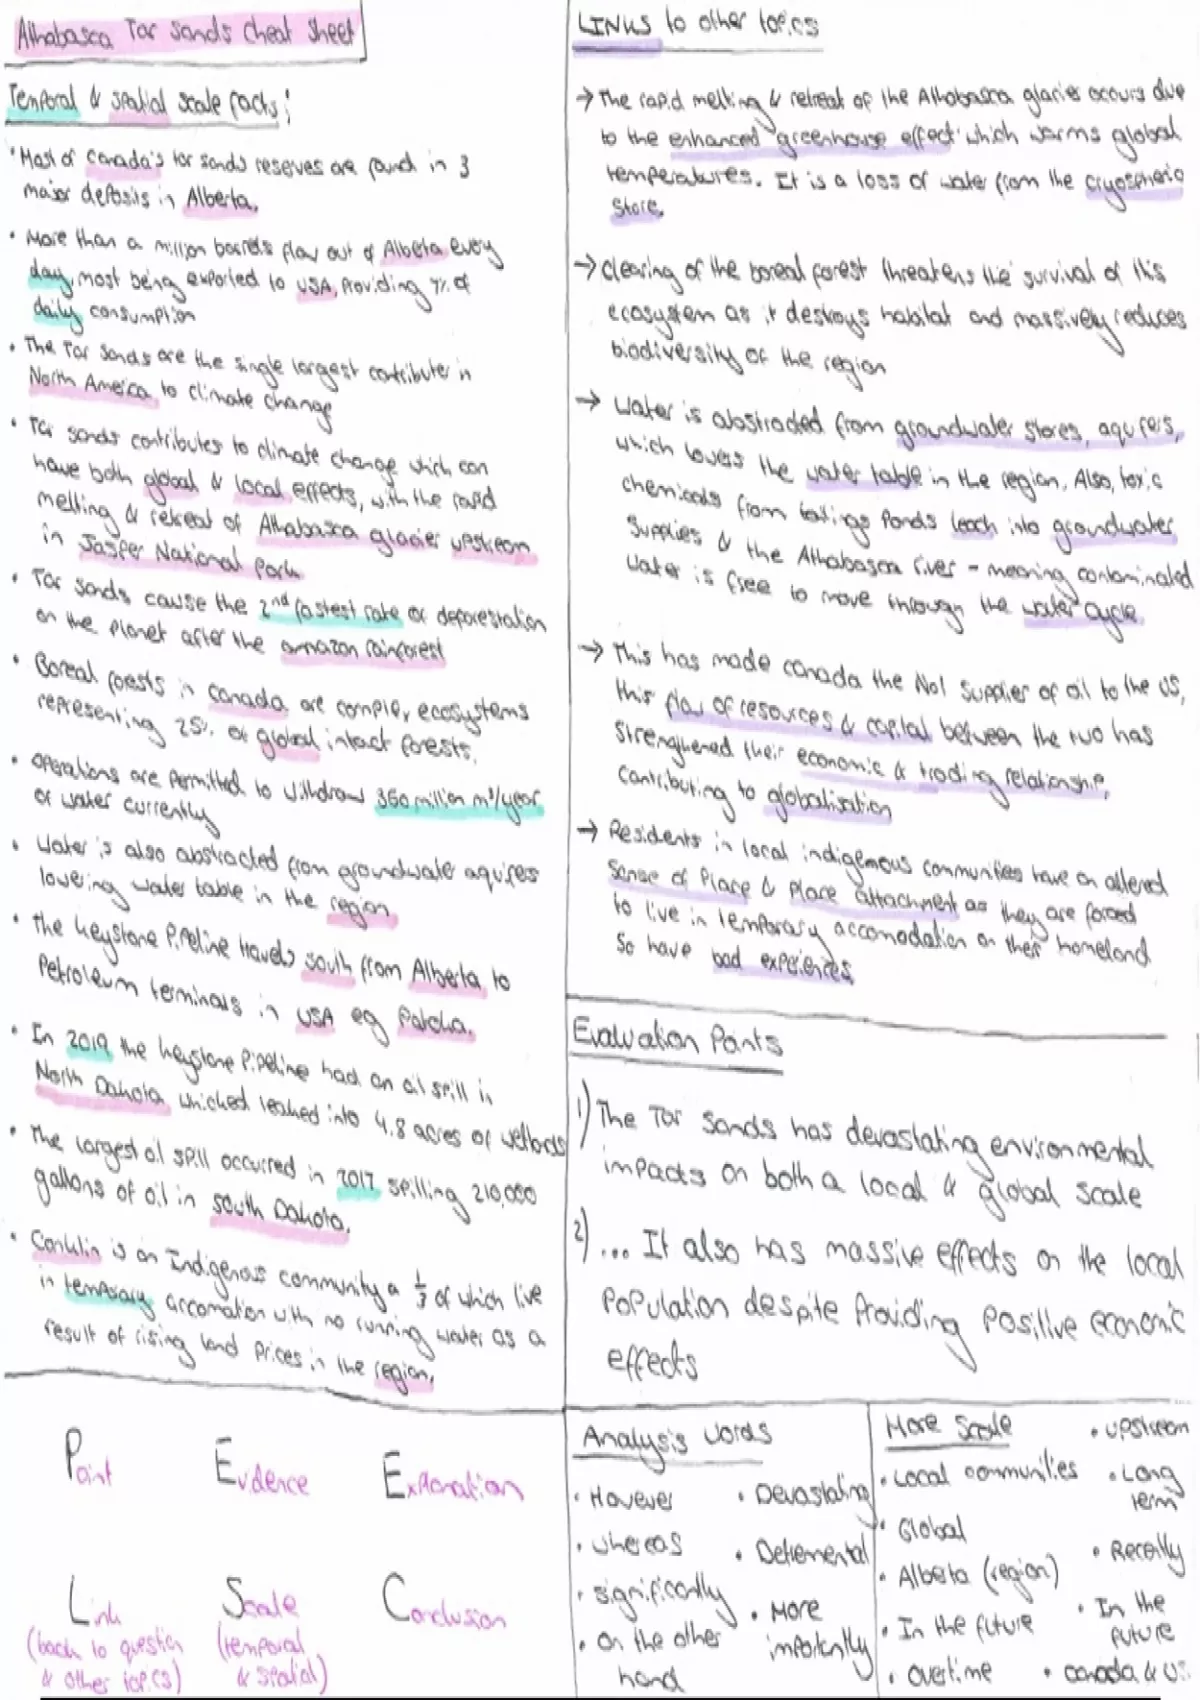 Athabasca Tar Sands Cheat Sheet
Temporal & spatial scale facts:
• Most of Canada's tar sands reserves are found in 3
major deposits in Alberta.
• More than a million barrels flow out of Alberta every
day, most being exported to USA, Providing 7% of
daily consumption
• The Tar Sands are the single largest contributer in
North America to climate change
• Tar sands contributes to climate change which can
have both global & local effects, with the rapid
melting & retreat of Athabasca glacier upstream
in Jasper National Park
• Tar sands cause the 2nd fastest rate of deforestation
on the planet after the amazon rainforest
• Boreal forests in Canada are complex ecosystems
representing 25% of global intact forests.
• Operations are permitted to withdraw 360 million m³/year
of water currently
• Water is also abstracted from groundwater aquifes
lowering water table in the region
• The Keystone Pipeline travels south from Alberta to
Petroleum terminals in USA eg Patoka.
• In 2019 the keystone Pipeline had an oil spill in
North Dakota whicked leaked into 4.8 acres of wetlands
• The largest oil spill occurred in 2017 spilling 210,000
gallons of oil in South Dakota.
• Conklin is an Indigenous community a 1/3 of which live
in temporary accomation with no running water as a
result of rising land prices in the region.
Point Evidence Explanation
Link Scale Conclusion
(back to question (temporal
& other topics) & spatial)
LINKS to other topics
→ The rapid melting & retreat of the Athabasca glacier occurs due
to the enhanced greenhouse effect which warms global
temperatures. It is a loss of water from the cryospheric
Store.
→ Clearing of the boreal forest threatens the survival of this
ecosystem as it destroys habitat and massively reduces
biodiversity of the region
→ Water is abstracted from groundwater stores, aquifers,
which lowers the water table in the region. Also, toxic
chemicals from tailings Ponds leach into groundwater
supplies & the Athabasca river - meaning contaminated
water is free to move through the water cycle.
→ This has made canada the No1 supplier of oil to the US,
this flow of resources & capital between the two has
strengthened their economic & trading relationship,
contributing to globalisation
→ Residents in local indigenous communities have an altered
Sense of Place & Place attachment as they are forced
to live in temporary accomodation on their homeland
So have bad experiences
Evaluation Points
1) The Tar Sands has devastating environmental
impacts on both a local & global scale
2) ... It also has massive effects on the local
Population despite Providing Positive economic
effects
Analysis words
• However • Devastating
• whereas • Detremental
• significantly • More
importantly
• On the other
hand
More Scale • upstream
• Local communities • Long
term
• Global
• Alberta (region) • Recently
• In the future • In the
future
• overtime • canada & US